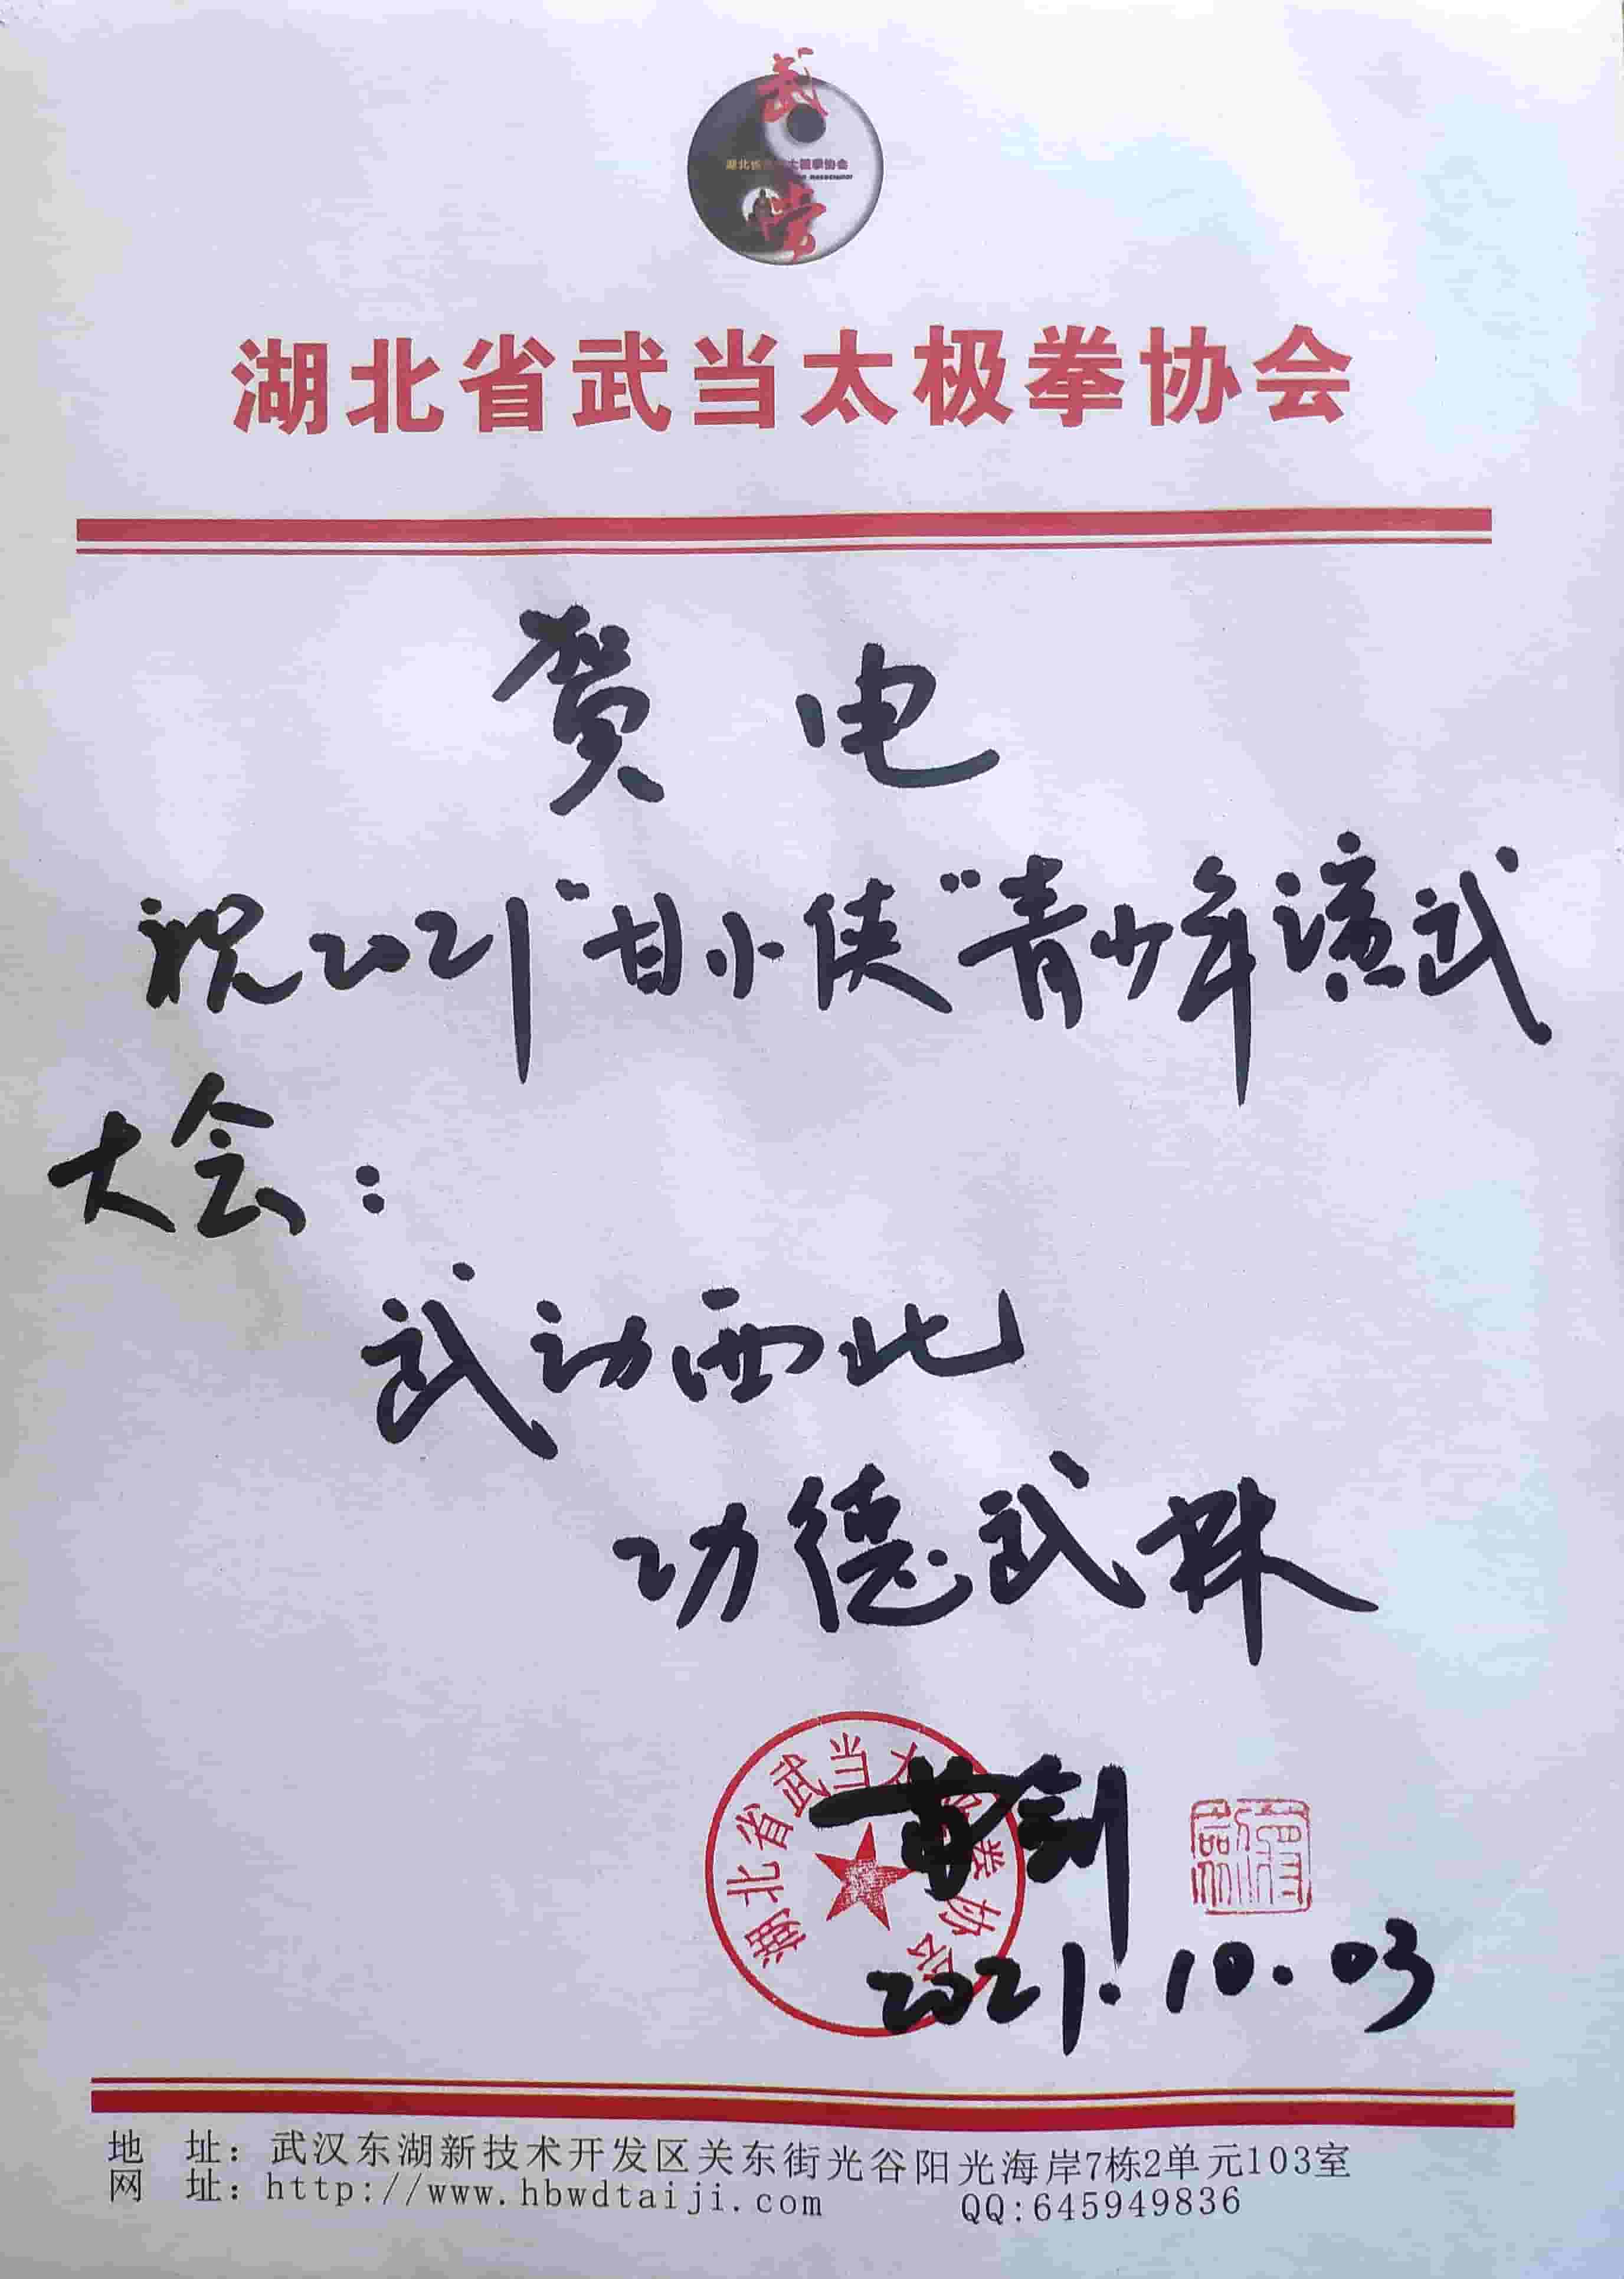 武当
湖北省武当太极拳协会
贺电
祝2021"甘小侠"青少年演武
大会:
武动西北
功德武林
湖北省武当太极拳协会
剑
2021.10.03
地 址: 武汉东湖新技术开发区关东街光谷阳光海岸7栋2单元103室
网 址: http://www.hbwdtaiji.com QQ:645949836